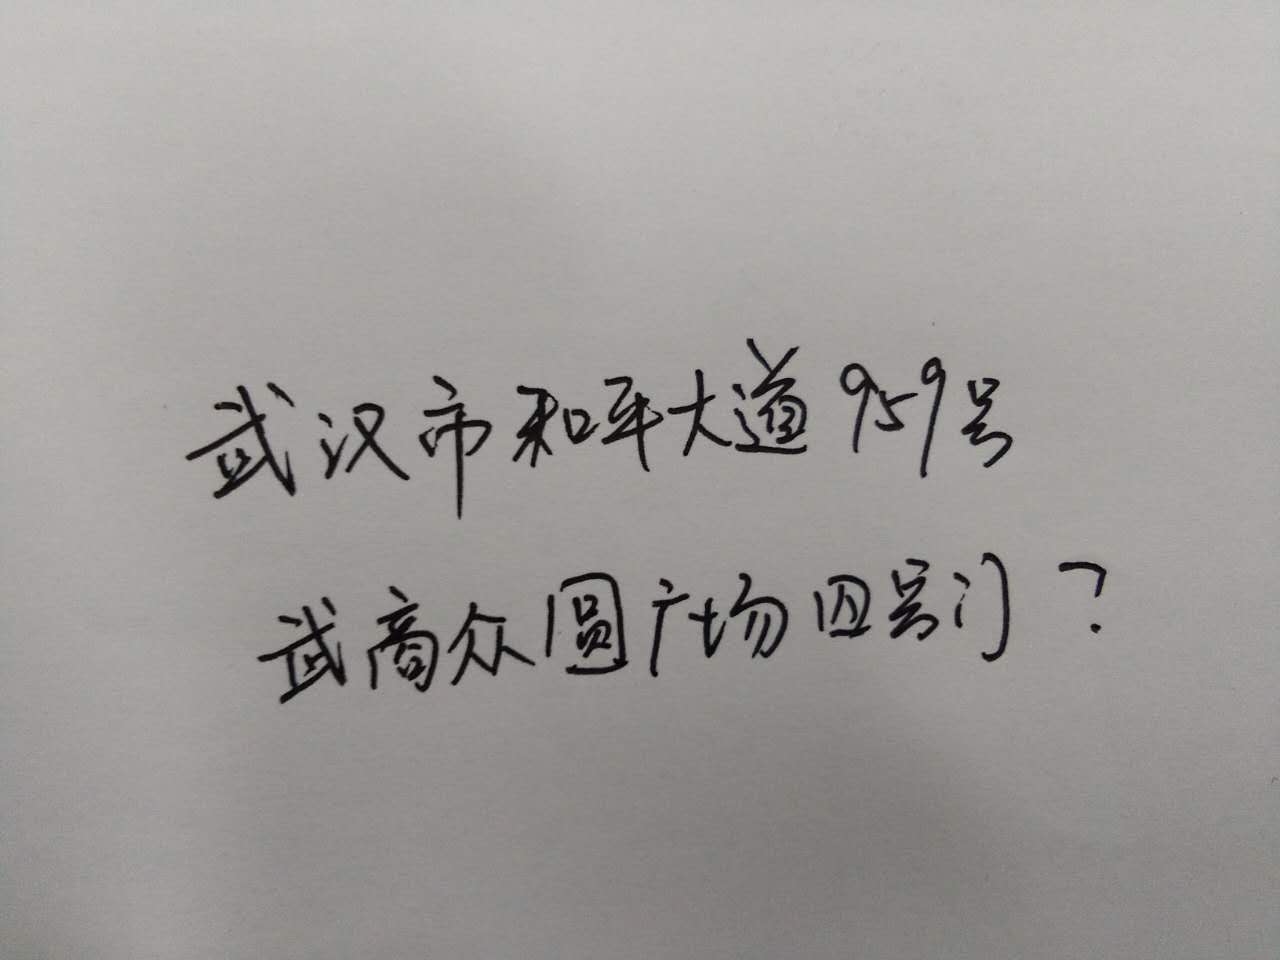 武汉市和平大道959号
武商众圆广场四号门？